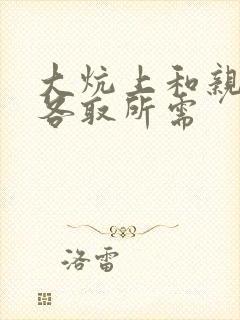 大炕上和亲
各取所需
洛雷